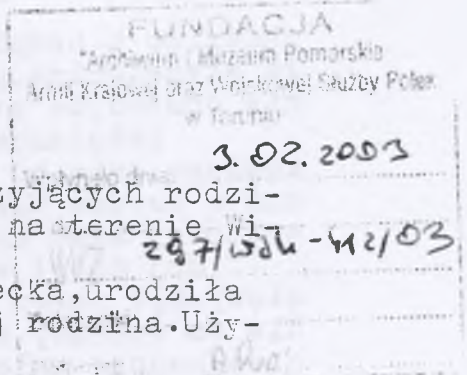 FUNDACJA
"Archiwum i Muzeum Pomorskie
Armii Krajowej oraz Wojskowej Służby Polek
w Toruniu
3.02.2003
Wpłynęło dnia
zyjących rodzi-
na terenie Wi-
297/WSK-412/03
ecka,urodziła
j rodzina.Uży-